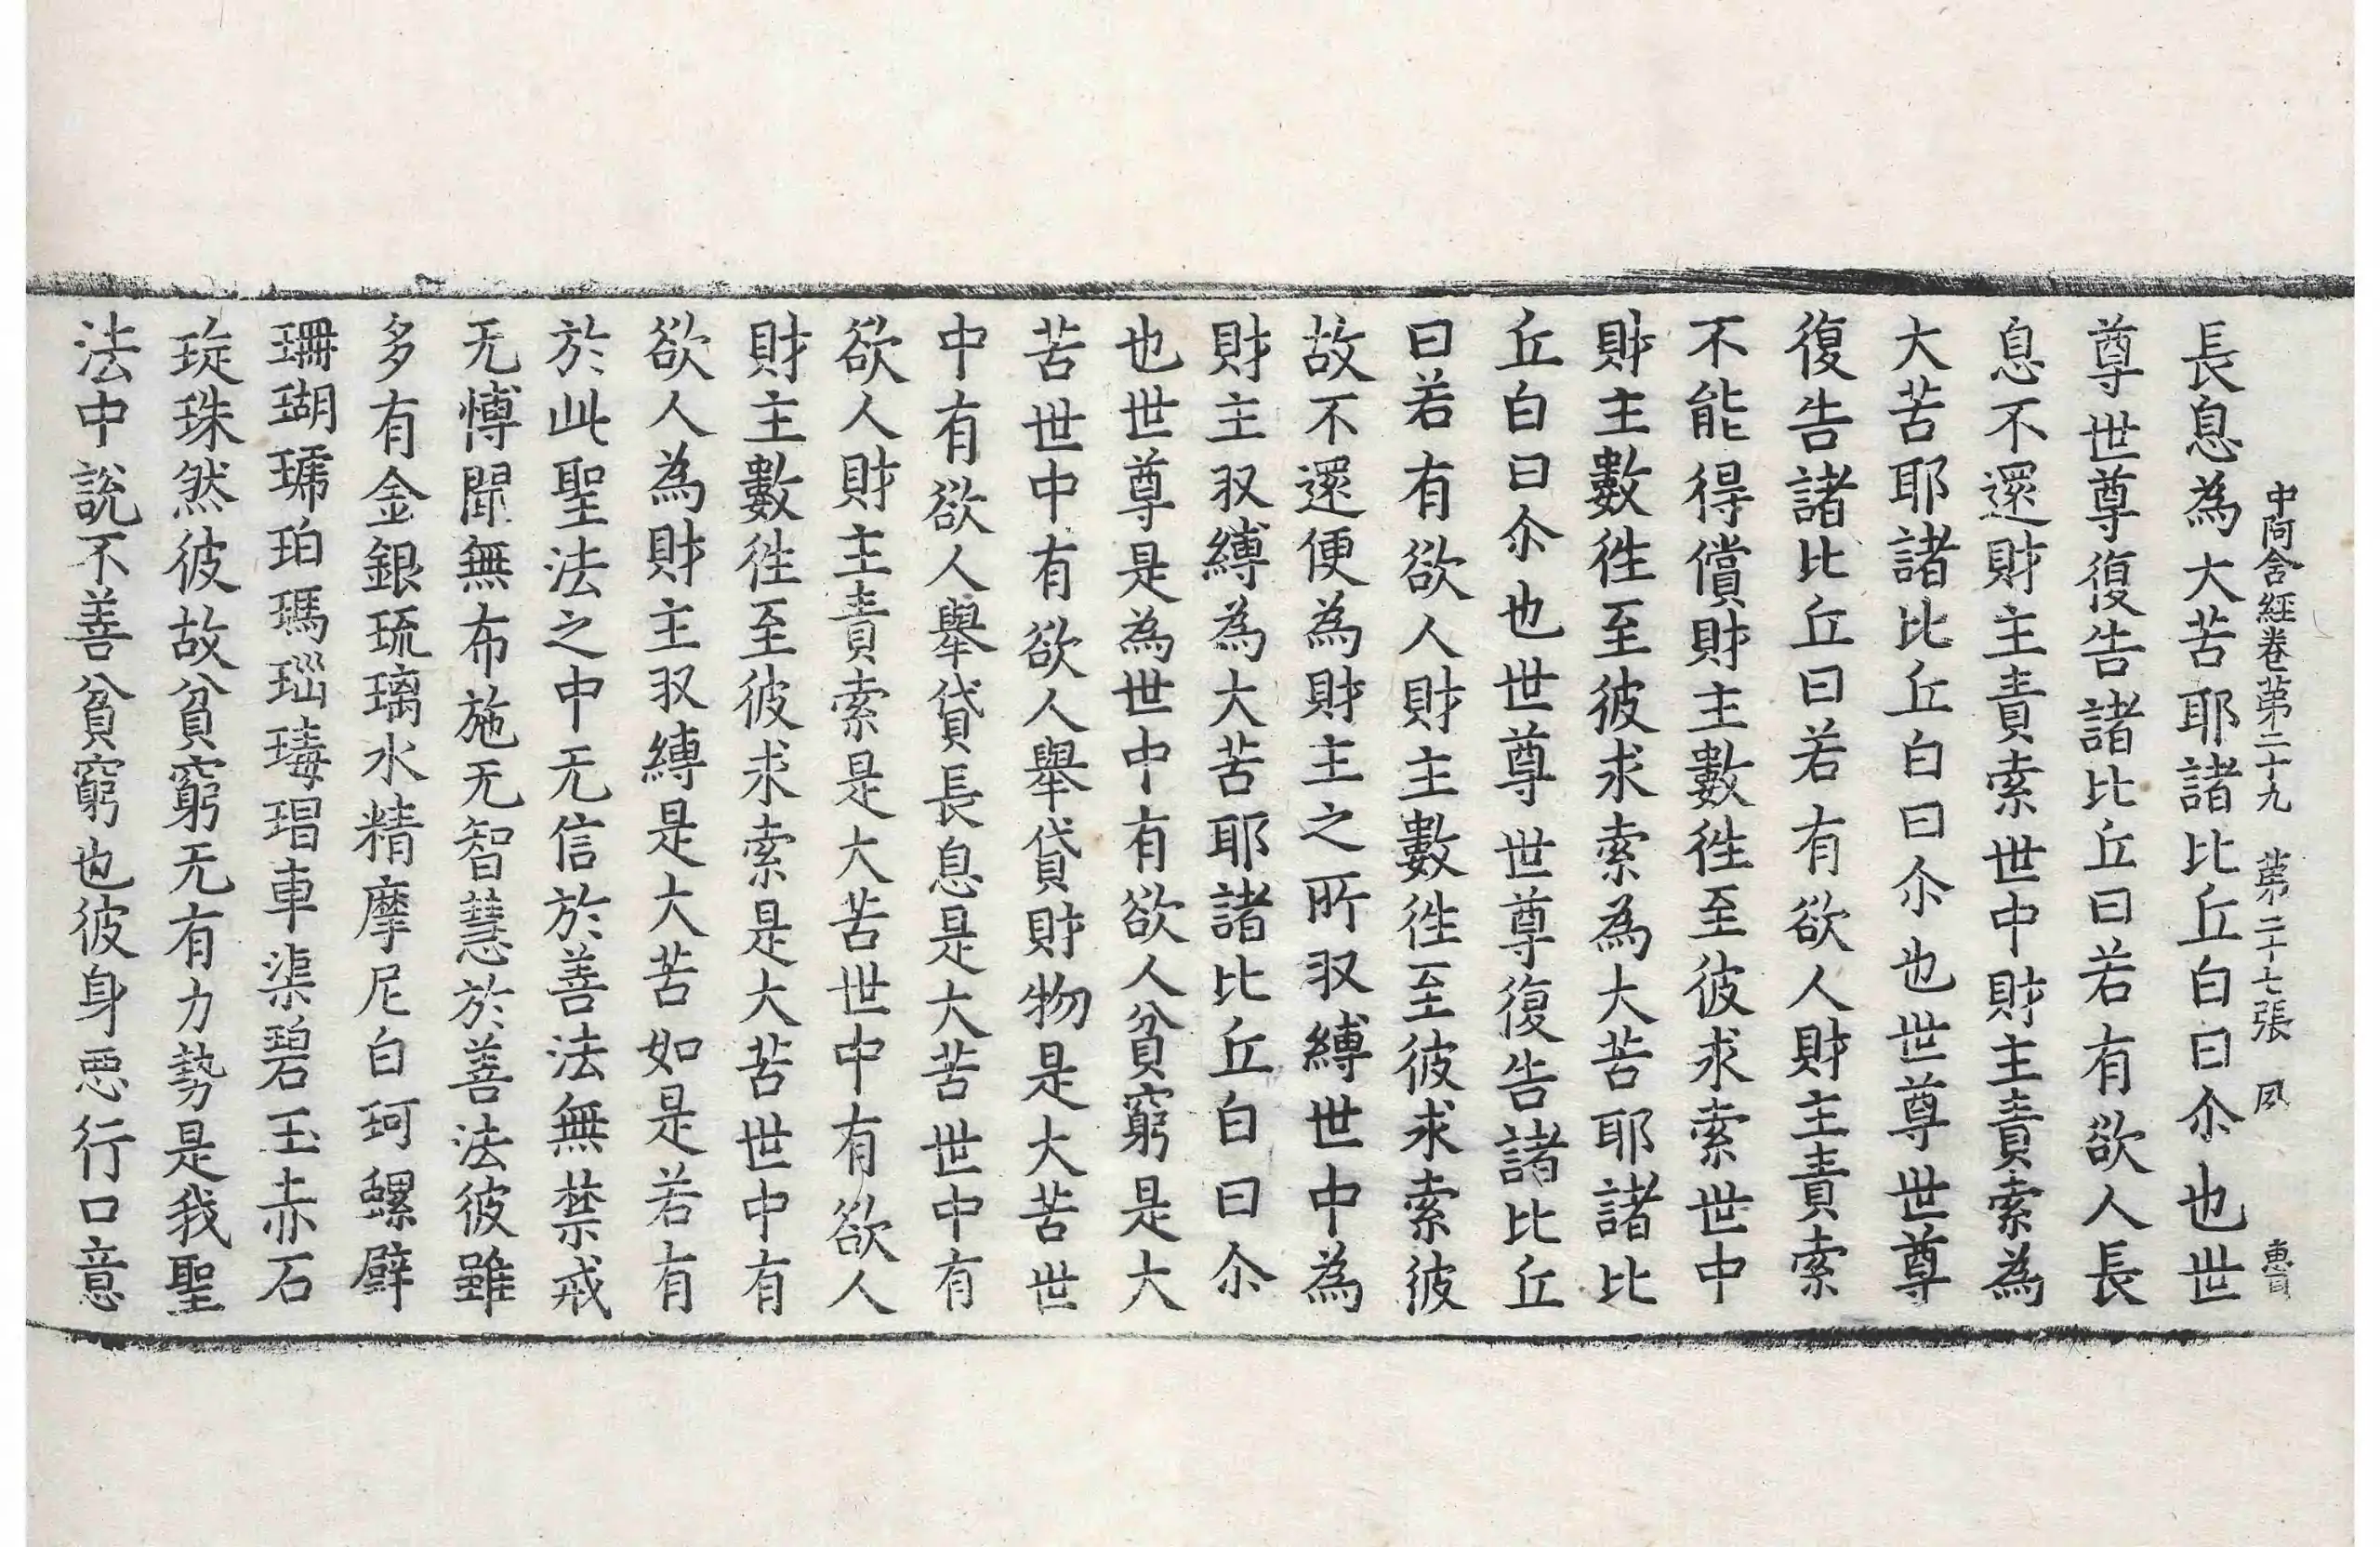 中阿含經卷苐二十九 苐二十七張 夙
長息為大苦耶諸比丘白曰尒也世
尊世尊復告諸比丘曰若有欲人長
息不還財主責索世中財主責索為
大苦耶諸比丘白曰尒也世尊世尊
復告諸比丘曰若有欲人財主責索
不能得償財主數徃至彼求索世中
財主數徃至彼求索為大苦耶諸比
丘白曰尒也世尊世尊復告諸比丘
曰若有欲人財主數徃至彼求索彼
故不還便為財主之所収縛世中為
財主収縛為大苦耶諸比丘白曰尒
也世尊是為世中有欲人貧窮是大
苦世中有欲人舉貸財物是大苦世
中有欲人舉貸長息是大苦世中有
欲人財主責索是大苦世中有欲人
財主數徃至彼求索是大苦世中有
欲人為財主収縛是大苦如是若有
於此聖法之中无信於善法無禁戒
无博聞無布施无智慧於善法彼雖
多有金銀琉璃水精摩尼白珂螺璧
珊瑚琥珀瑪瑙瑇瑁車渠碧玉赤石
琁珠然彼故貧窮无有力勢是我聖
法中說不善貧窮也彼身惡行口意